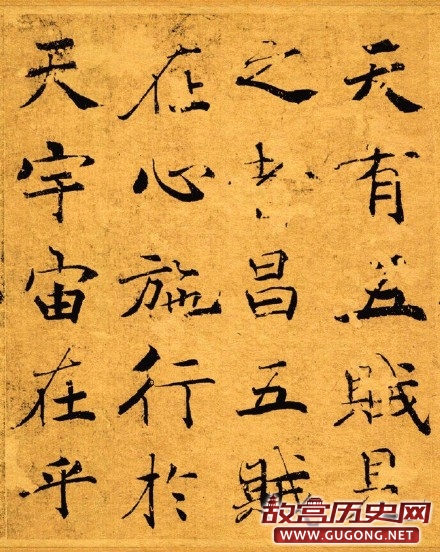 天有五賊見
之者昌五賊
在心施行於
天宇宙在乎
故宫历史网
WWW.GUGONG.NET